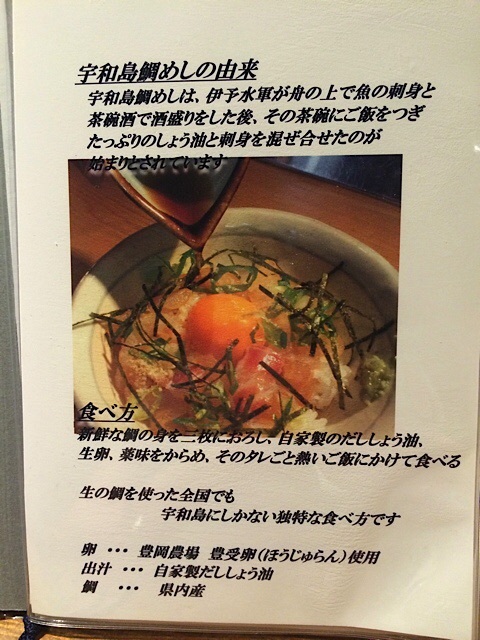 宇和島鯛めしの由来
宇和島鯛めしは、伊予水軍が舟の上で魚の刺身と
茶碗酒で酒盛りをした後、その茶碗にご飯をつぎ
たっぷりのしょう油と刺身を混ぜ合せたのが
始まりとされています
食べ方
新鮮な鯛の身を三枚におろし、自家製のだししょう油、
生卵、薬味をからめ、そのタレごと熱いご飯にかけて食べる
生の鯛を使った全国でも
宇和島にしかない独特な食べ方です
卵 ・・・ 豊岡農場 豊受卵(ほうじゅらん)使用
出汁 ・・・ 自家製だししょう油
鯛 ・・・ 県内産